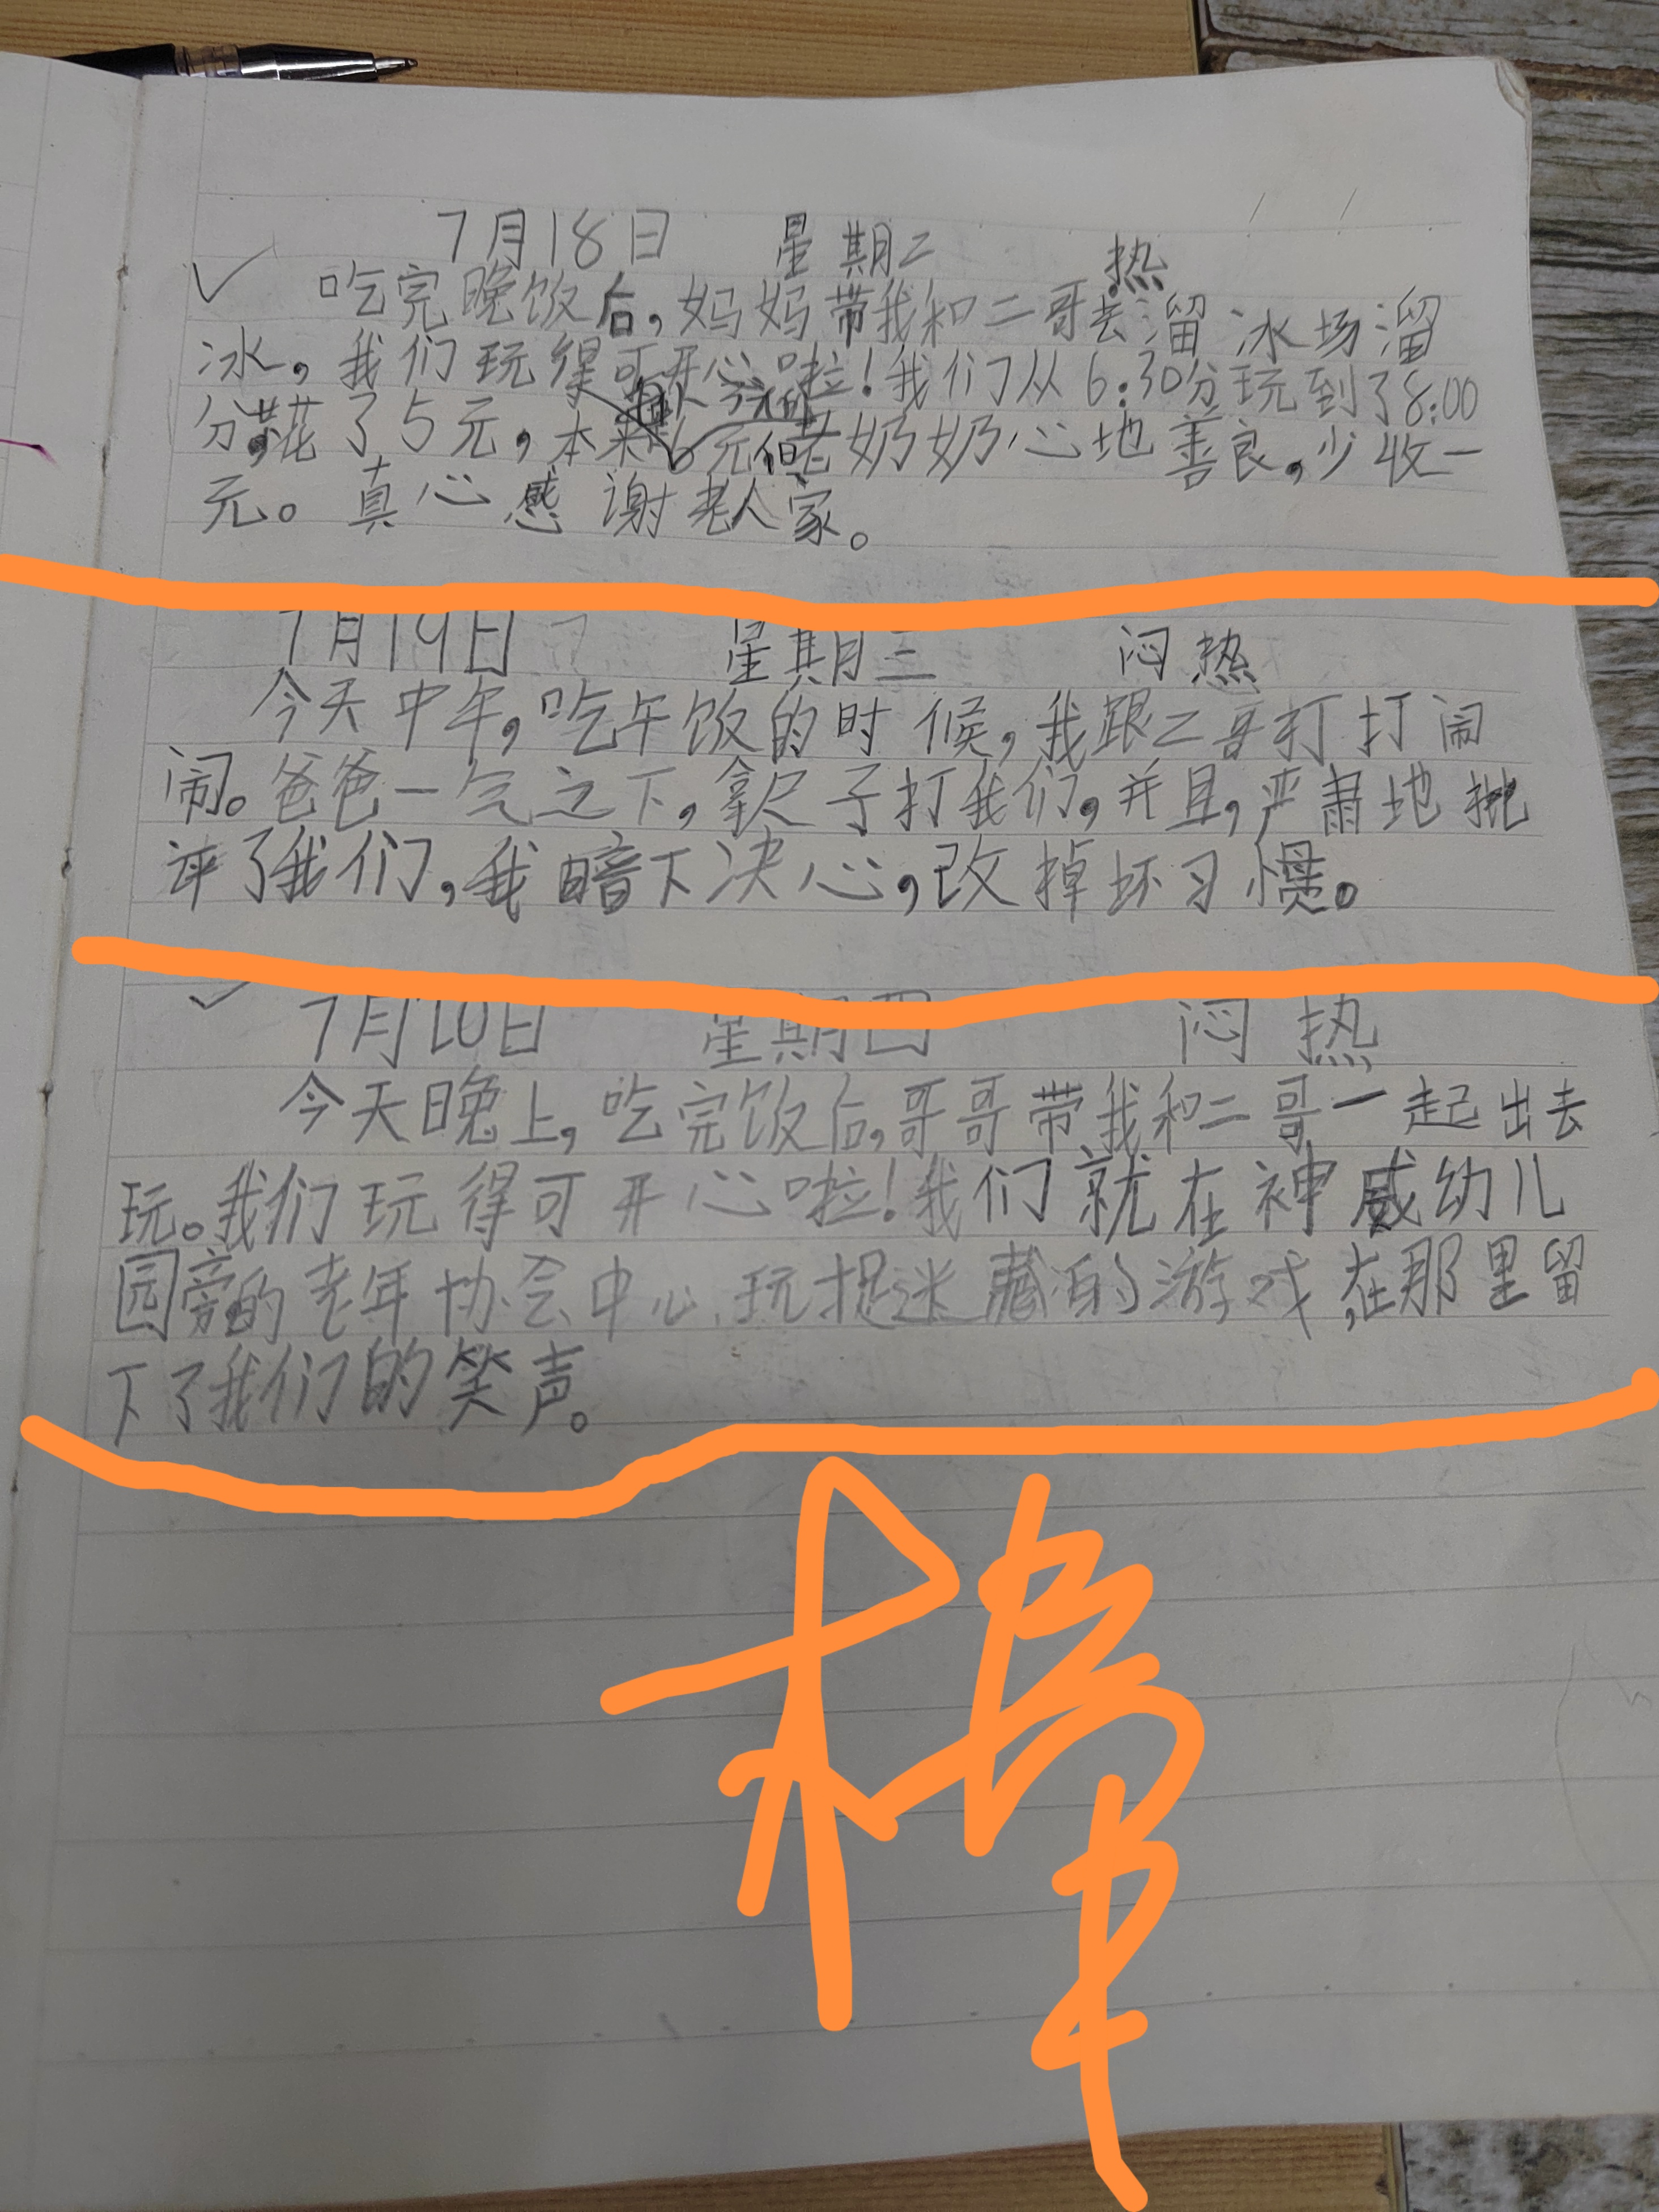 7月18日 星期二 热
吃完晚饭后,妈妈带我和二哥去溜冰场溜
冰,我们玩得可开心啦!我们从6:30分玩到了8:00
分,花了5元,本来6元,但老奶奶心地善良,少收一
元。真心感谢老人家。
7月19日 星期三 闷热
今天中午,吃午饭的时候,我跟二哥打打闹
闹。爸爸一气之下,拿尺子打我们,并且,严肃地批
评了我们,我暗下决心,改掉坏习惯。
7月20日 星期四 闷热
今天晚上,吃完饭后,哥哥带我和二哥一起出去
玩。我们玩得可开心啦!我们就在神威幼儿
园旁的老年协会中心玩捉迷藏的游戏,在那里留
下了我们的笑声。
棒